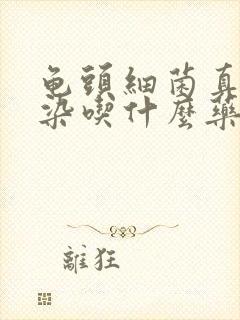 龟頭細菌真
染喫什麼藥
離狂